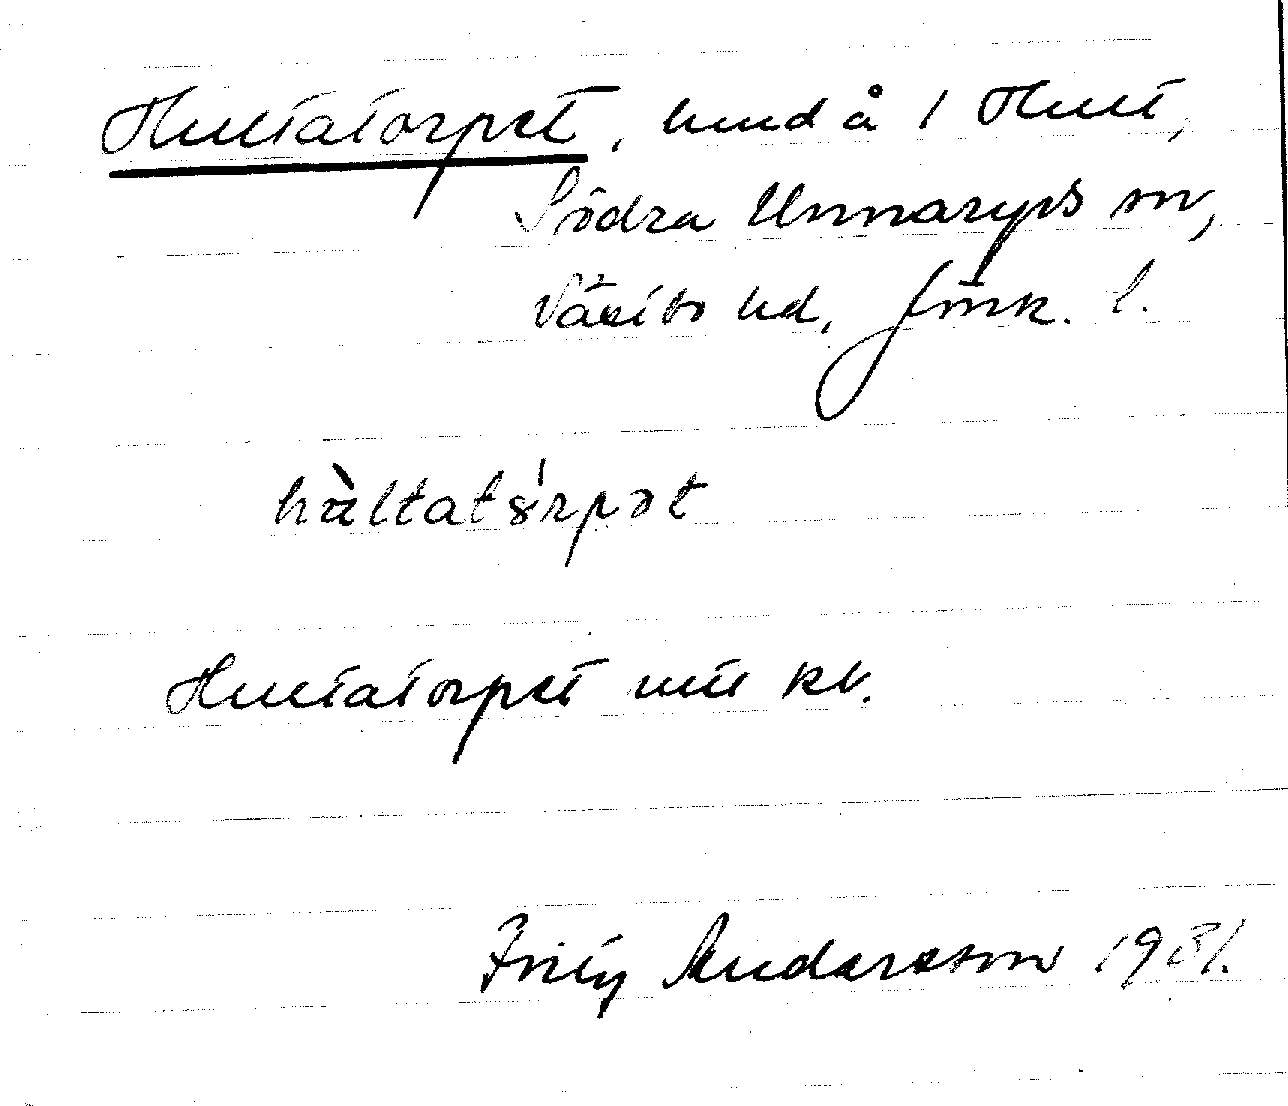 Hultatorpet, hmd å 1 Hult,
Södra Unnaryds sn,
Västbo hd, Jönk. l.
hàltatŏ́rpət
Hultatorpet mtl kb.
Fritz Andersson 1931.